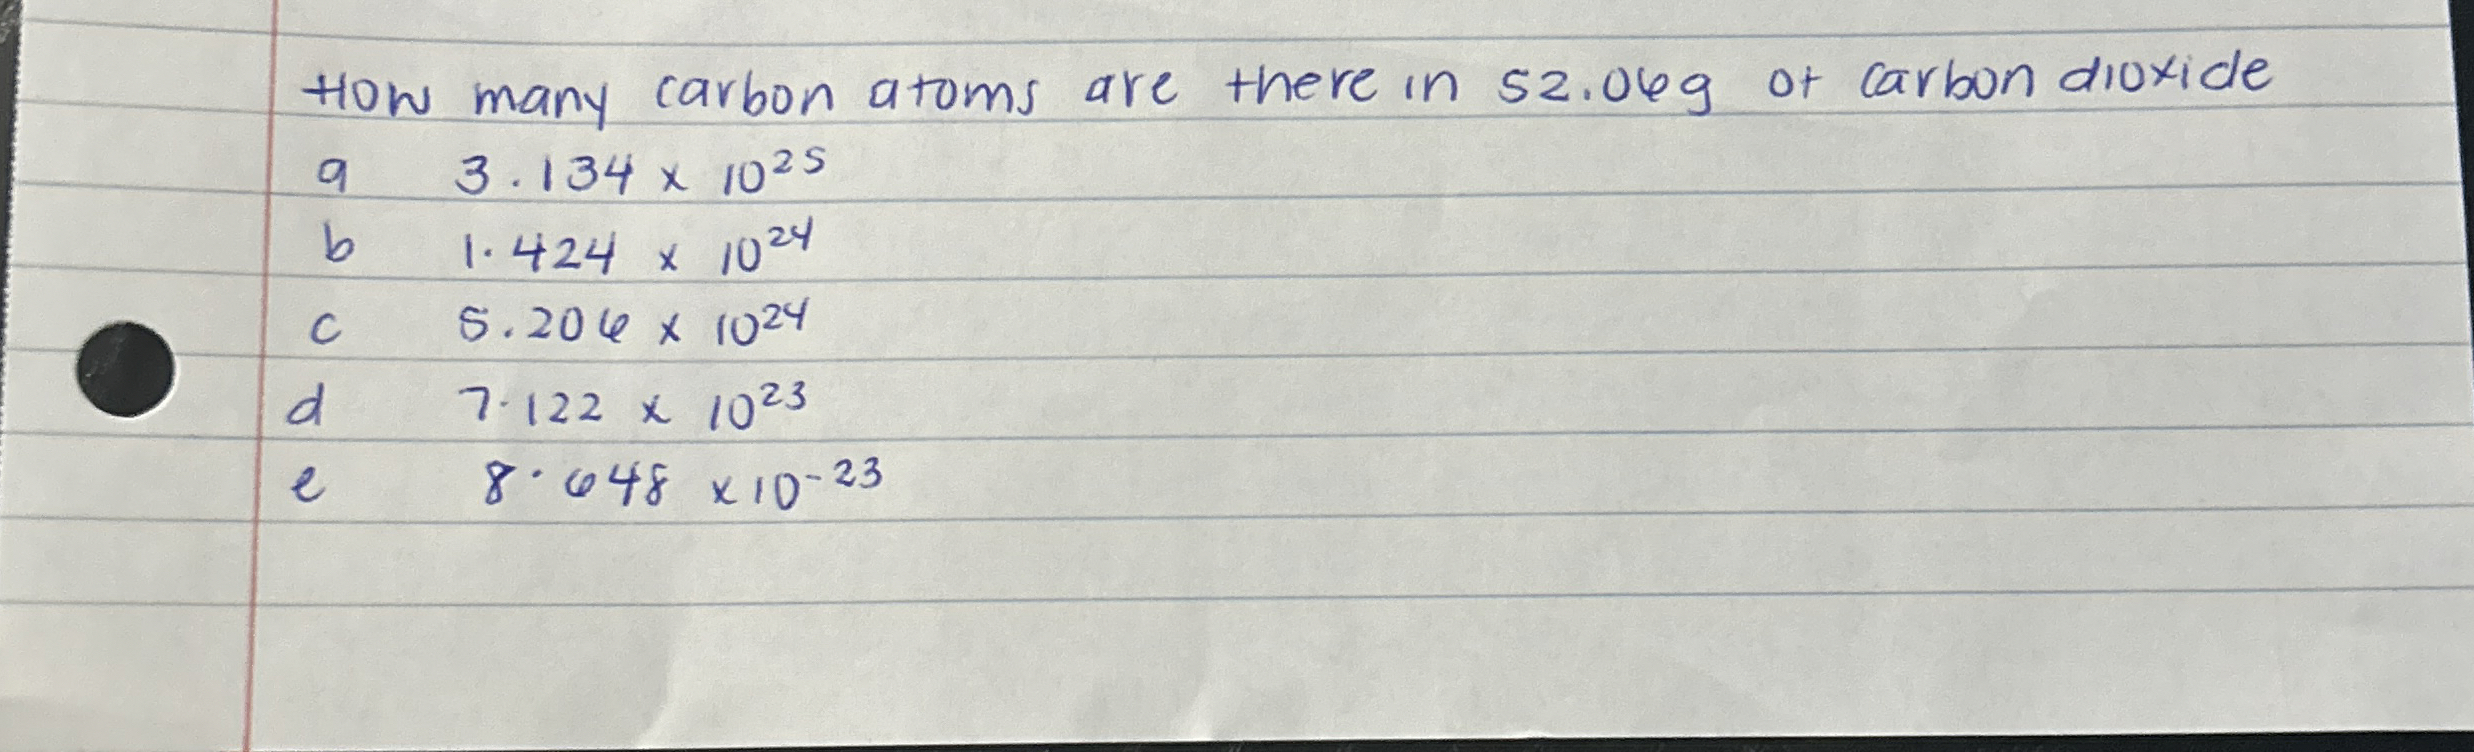 How many carbon atoms are there in 52.06g of carbon dioxide
a 3.134 x 10²⁵
b 1.424 x 10²⁴
c 5.206 x 10²⁴
d 7.122 x 10²³
e 8.648 x 10⁻²³